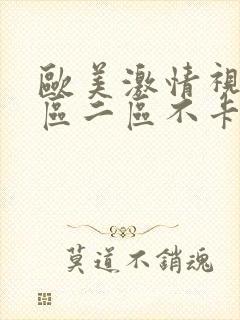 歐美激情視
區二區不卡
莫道不銷魂